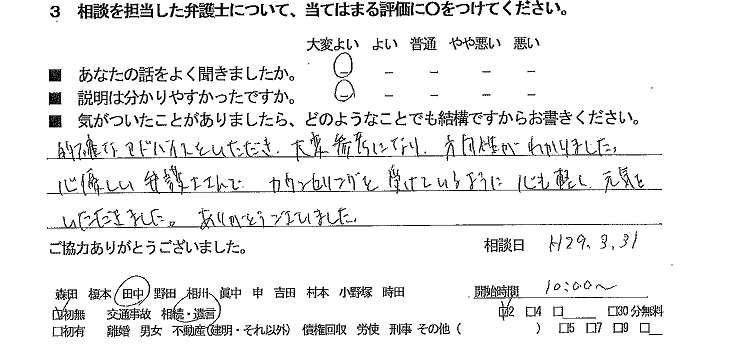 3 相談を担当した弁護士について、当てはまる評価に○をつけてください。
大変よい よい 普通 やや悪い 悪い
■ あなたの話をよく聞きましたか。 － － － － －
■ 説明は分かりやすかったですか。 － － － － －
■ 気がついたことがありましたら、どのようなことでも結構ですからお書きください。
的確なアドバイスをいただき、大変参考になり、方向性がわかりました。
心優しい弁護士さんで カウンセリングを受けているように 心も軽く、元気を
いただきました。ありがとうございました。
ご協力ありがとうございました。 相談日 H29.3.31
森田 榎本 田中 野田 相川 眞中 申 吉田 村本 小野塚 時田 開始時間 10:00～
□初無 交通事故 相続・遺言 □2 □4 □__ □30分無料
□初有 離婚 男女 不動産(建明・それ以外) 債権回収 労使 刑事 その他 ( ) □5 □7 □9 □__